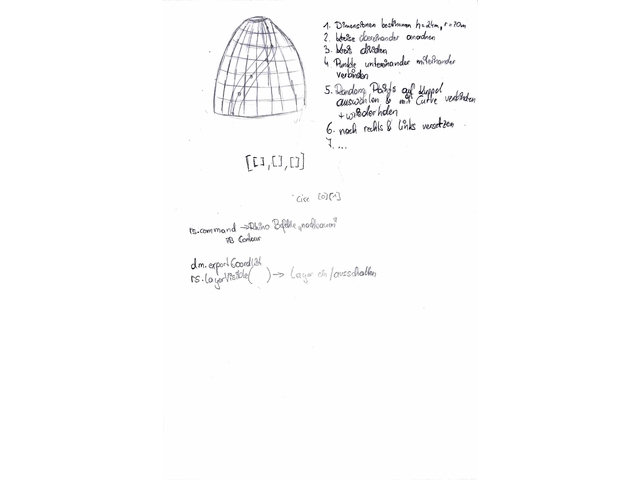 1. Dimensionen bestimmen h=24m, r=10m
2. Kreise übereinander anordnen
3. Kreis dividen
4. Punkte untereinander miteinander
verbinden
5. Random Points auf Kuppel
auswählen & mit Curve verbinden
+ wiederholen
6. nach rechts & links versetzen
7. ...
[[],[],[]]
circ [0][n]
rs.command → Rhino Befehle „nachbauen"
zB Contour
dm.exportCoordlist
rs.layerVisible( ) → Layer ein/ausschalten